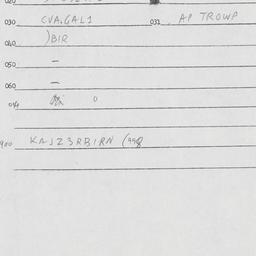 020
030 CVA, GAL1 032 AP TROWP
040 )BIR
050 –
060 –
0
900 KAJZ3RBIRN